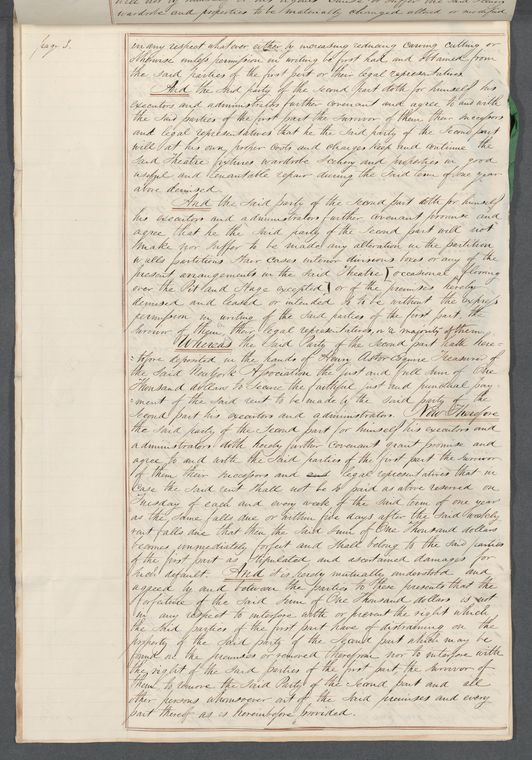 wardrobe and properties to be materially changed altered or modified
page 3.
in any respect whatever either by increasing reducing carving cutting or
otherwise unless permission in writing be first had and obtained from
the said parties of the first part or their legal representatives
And the said party of the Second part doth for himself his
executors and administrators further covenant and agree to and with
the said parties of the first part the Survivor of them their successors
and legal representatives that he the said party of the Second part
will at his own proper costs and charges keep and continue the
said Theatre fixtures wardrobe Scenery and properties in good
useful and tenantable repair during the said term of one year
above demised.
And the said party of the Second part doth for himself
his executors and administrators further covenant promise and
agree that he the said party of the Second part will not
make nor suffer to be made any alteration in the partition
walls partitions Stair cases interior divisions boxes or any of the
present arrangements in the said Theatre (occasional flooring
over the Pit and Stage excepted) or of the premises hereby
demised and leased or intended so to be without the express
permission in writing of the said parties of the first part, the
Survivor of them, their legal representatives, or a majority of them.
Whereas the said Party of the Second part hath here-
-tofore deposited in the hands of Henry Astor Esquire Treasurer of
the said New York Association the just and full sum of One
Thousand dollars to secure the faithful just and punctual pay-
-ment of the said rent to be made by the said party of the
Second part his executors and administrators. Now Therefore
the said party of the Second part for himself his executors and
administrators doth hereby further covenant grant promise and
agree to and with the said parties of the first part the Survivor
of them their successors and legal representatives that in
case the said rent shall not be so paid as above reserved on
Tuesday of each and every week of the said term of one year
as the same falls due or within five days after the said weekly
rent falls due that then the said sum of One Thousand dollars
becomes immediately forfeit and shall belong to the said parties
of the first part as stipulated and ascertained damages for
such default. And it is hereby mutually understood and
agreed by and between the parties to these presents that the
forfeiture of the said sum of One Thousand dollars is not
in any respect to interfere with or prevent the right which
the said parties of the first part have of distraining on the
property of the said party of the Second part which may be
found on the premises or removed therefrom nor to interfere with
the right of the said parties of the first part the Survivor of
them to remove the said Party of the Second part and all
other persons whomsoever out of the said premises and every
part thereof as is hereinbefore provided.